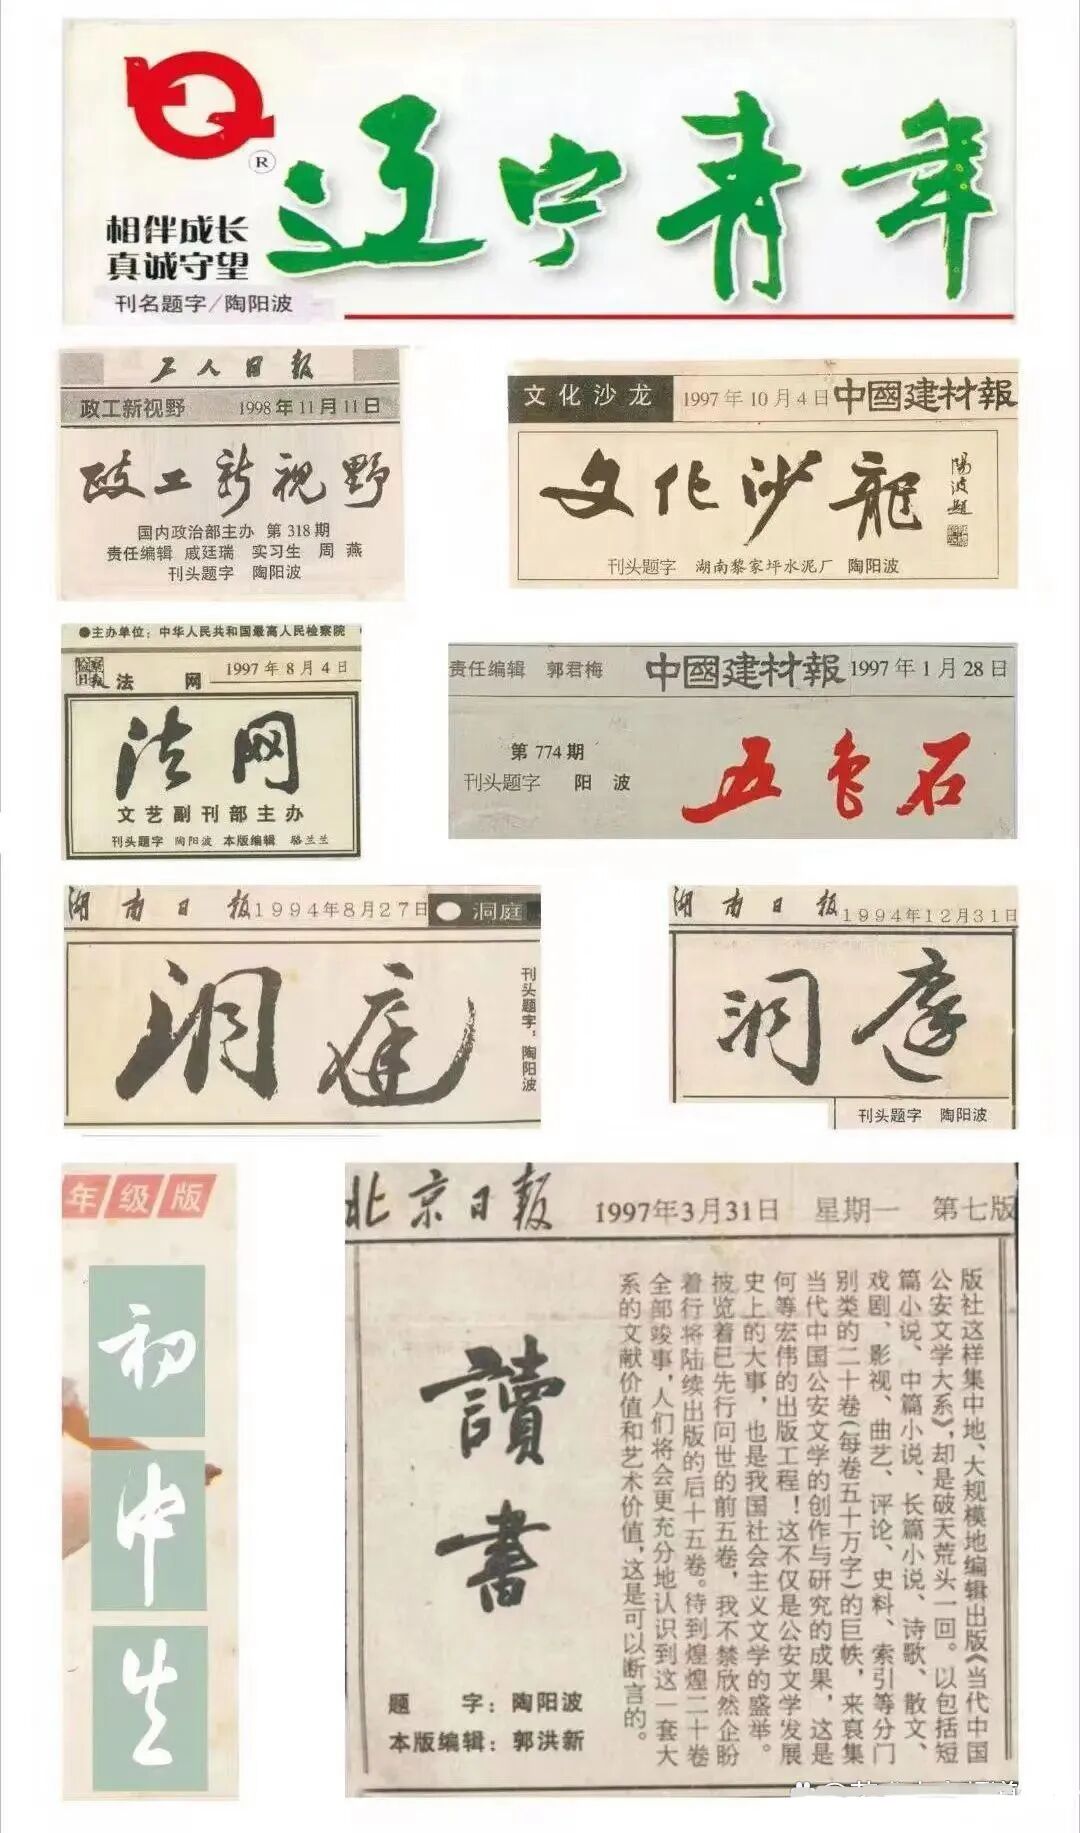 辽宁青年
®
相伴成长
真诚守望
刊名题字/陶阳波
工人日报
政工新视野 1998年11月11日
政工新视野
国内政治部主办 第318期
责任编辑 戚廷瑞 实习生 周燕
刊头题字 陶阳波
文化沙龙 1997年10月4日 中國建材報
文化沙龍
陽波題
刊头题字 湖南黎家坪水泥厂 陶阳波
●主办单位：中华人民共和国最高人民检察院
法网 1997年8月4日
法网
文艺副刊部主办
刊头题字 陶阳波 本版编辑 骆兰兰
责任编辑 郭君梅 中國建材報 1997年1月28日
第774期
刊头题字 阳波
五色石
湖南日报 1994年8月27日 洞庭
洞庭
刊头题字：陶阳波
湖南日报 1994年12月31日
洞庭
刊头题字 陶阳波
年级版
初中生
北京日报 1997年3月31日 星期一 第七版
讀書
题字：陶阳波
本版编辑：郭洪新
版社这样集中地、大规模地编辑出版《当代中国
公安文学大系》，却是破天荒头一回。以包括短
篇小说、中篇小说、长篇小说、诗歌、散文、
戏剧、影视、曲艺、评论、史料、索引等分门
别类的二十卷(每卷五十万字)的巨帙，来裒集
当代中国公安文学的创作与研究的成果，这是
何等宏伟的出版工程！这不仅是公安文学发展
史上的大事，也是我国社会主义文学的盛举。
披览着已先行问世的前五卷，我不禁欣然企盼
着行将陆续出版的后十五卷。待到煌煌二十卷
全部竣事，人们将会更充分地认识到这一套大
系的文献价值和艺术价值，这是可以断言的。